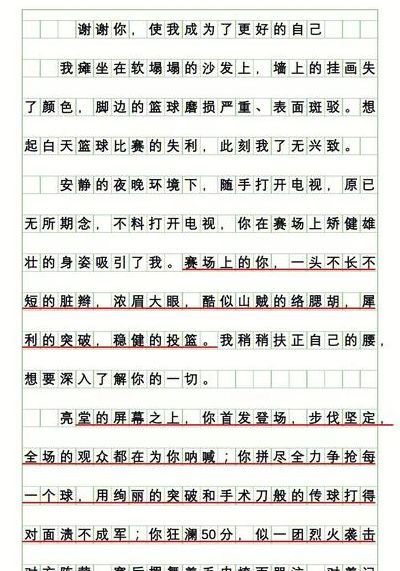 谢谢你，使我成为了更好的自己
我瘫坐在软塌塌的沙发上，墙上的挂画失
了颜色，脚边的篮球磨损严重、表面斑驳。想
起白天篮球比赛的失利，此刻我了无兴致。
安静的夜晚环境下，随手打开电视，原已
无所期念，不料打开电视，你在赛场上矫健雄
壮的身姿吸引了我。赛场上的你，一头不长不
短的脏辫，浓眉大眼，酷似山贼的络腮胡，犀
利的突破，稳健的投篮。我稍稍扶正自己的腰，
想要深入了解你的一切。
亮堂的屏幕之上，你首发登场，步伐坚定，
全场的观众都在为你呐喊；你拼尽全力争抢每
一个球，用绚丽的突破和手术刀般的传球打得
对面溃不成军；你狂澜50分，似一团烈火袭击